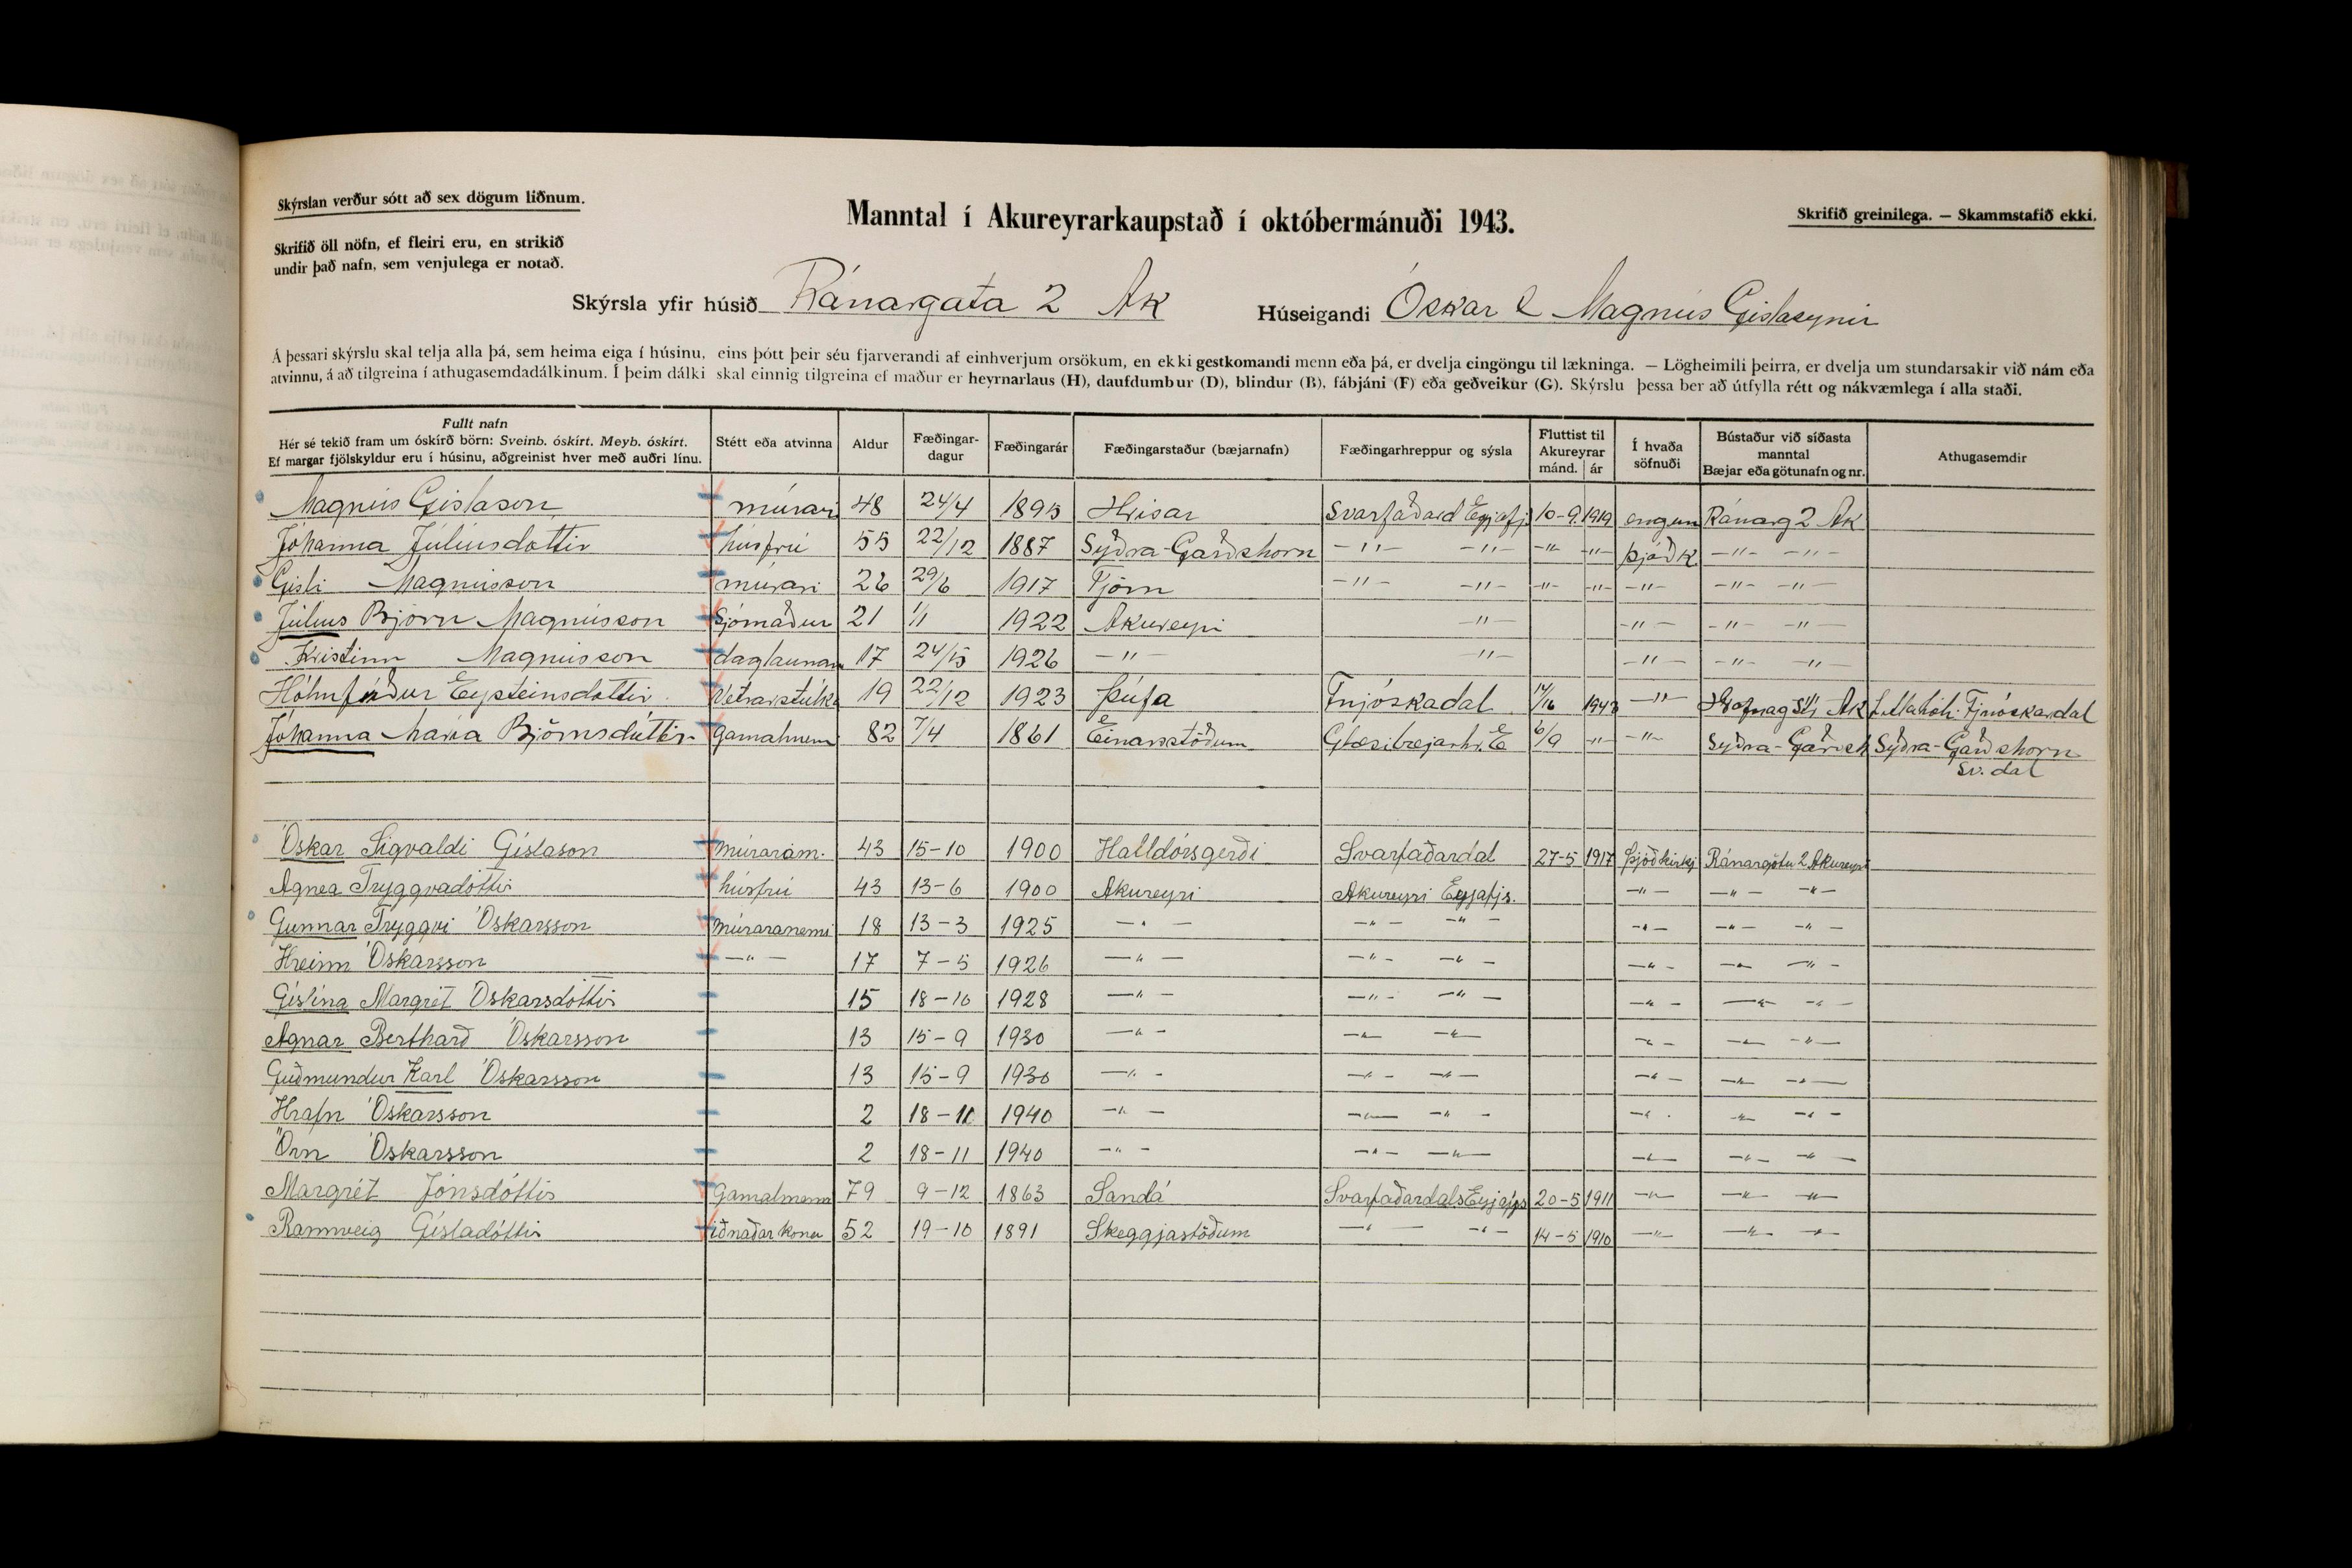 Skýrslan verður sótt að sex dögum liðnum.
Skrifið öll nöfn, ef fleiri eru, en strikið
undir það nafn, sem venjulega er notað.
Manntal í Akureyrarkaupstað í októbermánuði 1943.
Skrifið greinilega. — Skammstafið ekki.
Skýrsla yfir húsið Ránargata 2 Ak Húseigandi Óskar & Magnús Gíslasynir
Á þessari skýrslu skal telja alla þá, sem heima eiga í húsinu, eins þótt þeir séu fjarverandi af einhverjum orsökum, en ekki gestkomandi menn eða þá, er dvelja eingöngu til lækninga. — Lögheimili þeirra, er dvelja um stundarsakir við nám eða
atvinnu, á að tilgreina í athugasemdadálkinum. Í þeim dálki skal einnig tilgreina ef maður er heyrnarlaus (H), daufdumbur (D), blindur (B), fábjáni (F) eða geðveikur (G). Skýrslu þessa ber að útfylla rétt og nákvæmlega í alla staði.
Fullt nafn
Hér sé tekið fram um óskírð börn: Sveinb. óskírt. Meyb. óskírt.
Ef margar fjölskyldur eru í húsinu, aðgreinist hver með auðri línu.
Stétt eða atvinna
Aldur
Fæðingar-
dagur
Fæðingarár
Fæðingarstaður (bæjarnafn)
Fæðingarhreppur og sýsla
Fluttist til
Akureyrar
mánd. ár
Í hvaða
söfnuði
Bústaður við síðasta
manntal
Bæjar eða götunafn og nr.
Athugasemdir
Magnús Gíslason múrari 48 24/4 1895 Hrísar Svarfaðard Eyjafj 10-9 1919 engum Ránarg 2 Ak
Jóhanna Júlíusdóttir húsfrú 55 22/12 1887 Syðra-Garðshorn -"- -"- -"- -"- Þjóðk -"- -"-
Gísli Magnússon múrari 26 29/6 1917 Tjörn -"- -"- -"- -"- -"- -"- -"-
Júlíus Björn Magnússon Sjómaður 21 1/1 1922 Akureyri -"- -"- -"- -"-
Kristinn Magnússon daglaunam 17 24/5 1926 -"- -"- -"- -"- -"-
Hólmfríður Eysteinsdóttir Vetrarstúlka 19 22/12 1923 Þúfa Fnjóskadal 1943 -"- Ak Fnjóskardal
Jóhanna María Björnsdóttir Gamalmenni 82 7/4 1861 Einarsstöðum Glæsibæjarhr. E 6/9 -"- -"- Syðra-Garðsh Syðra-Garðshorn
Sv. dal
Óskar Sigvaldi Gíslason múraram. 43 15-10 1900 Halldórsgerði Svarfaðardal 27-5 1917 Þjóðkirkj Ránargötu 2 Akureyri
Agnea Tryggvadóttir húsfrú 43 13-6 1900 Akureyri Akureyri Eyjafjs. -"- -"- -"-
Gunnar Tryggvi Óskarsson múraranemi 18 13-3 1925 -"- -"- -"- -"- -"- -"-
Hreinn Óskarsson -"- 17 7-5 1926 -"- -"- -"- -"- -"- -"-
Gíslína Margrét Óskarsdóttir 15 18-10 1928 -"- -"- -"- -"- -"- -"-
Agnar Berthard Óskarsson 13 15-9 1930 -"- -"- -"- -"- -"- -"-
Guðmundur Karl Óskarsson 13 15-9 1930 -"- -"- -"- -"- -"- -"-
Hrafn Óskarsson 2 18-11 1940 -"- -"- -"- -"- -"- -"-
Örn Óskarsson 2 18-11 1940 -"- -"- -"- -"- -"- -"-
Margrét Jónsdóttir Gamalmenni 79 9-12 1863 Sandá Svarfaðardals Eyjafjs 20-5 1911 -"- -"- -"-
Rannveig Gísladóttir iðnaðarkona 52 19-10 1891 Skeggjastöðum -"- -"- 14-5 1910 -"- -"- -"-